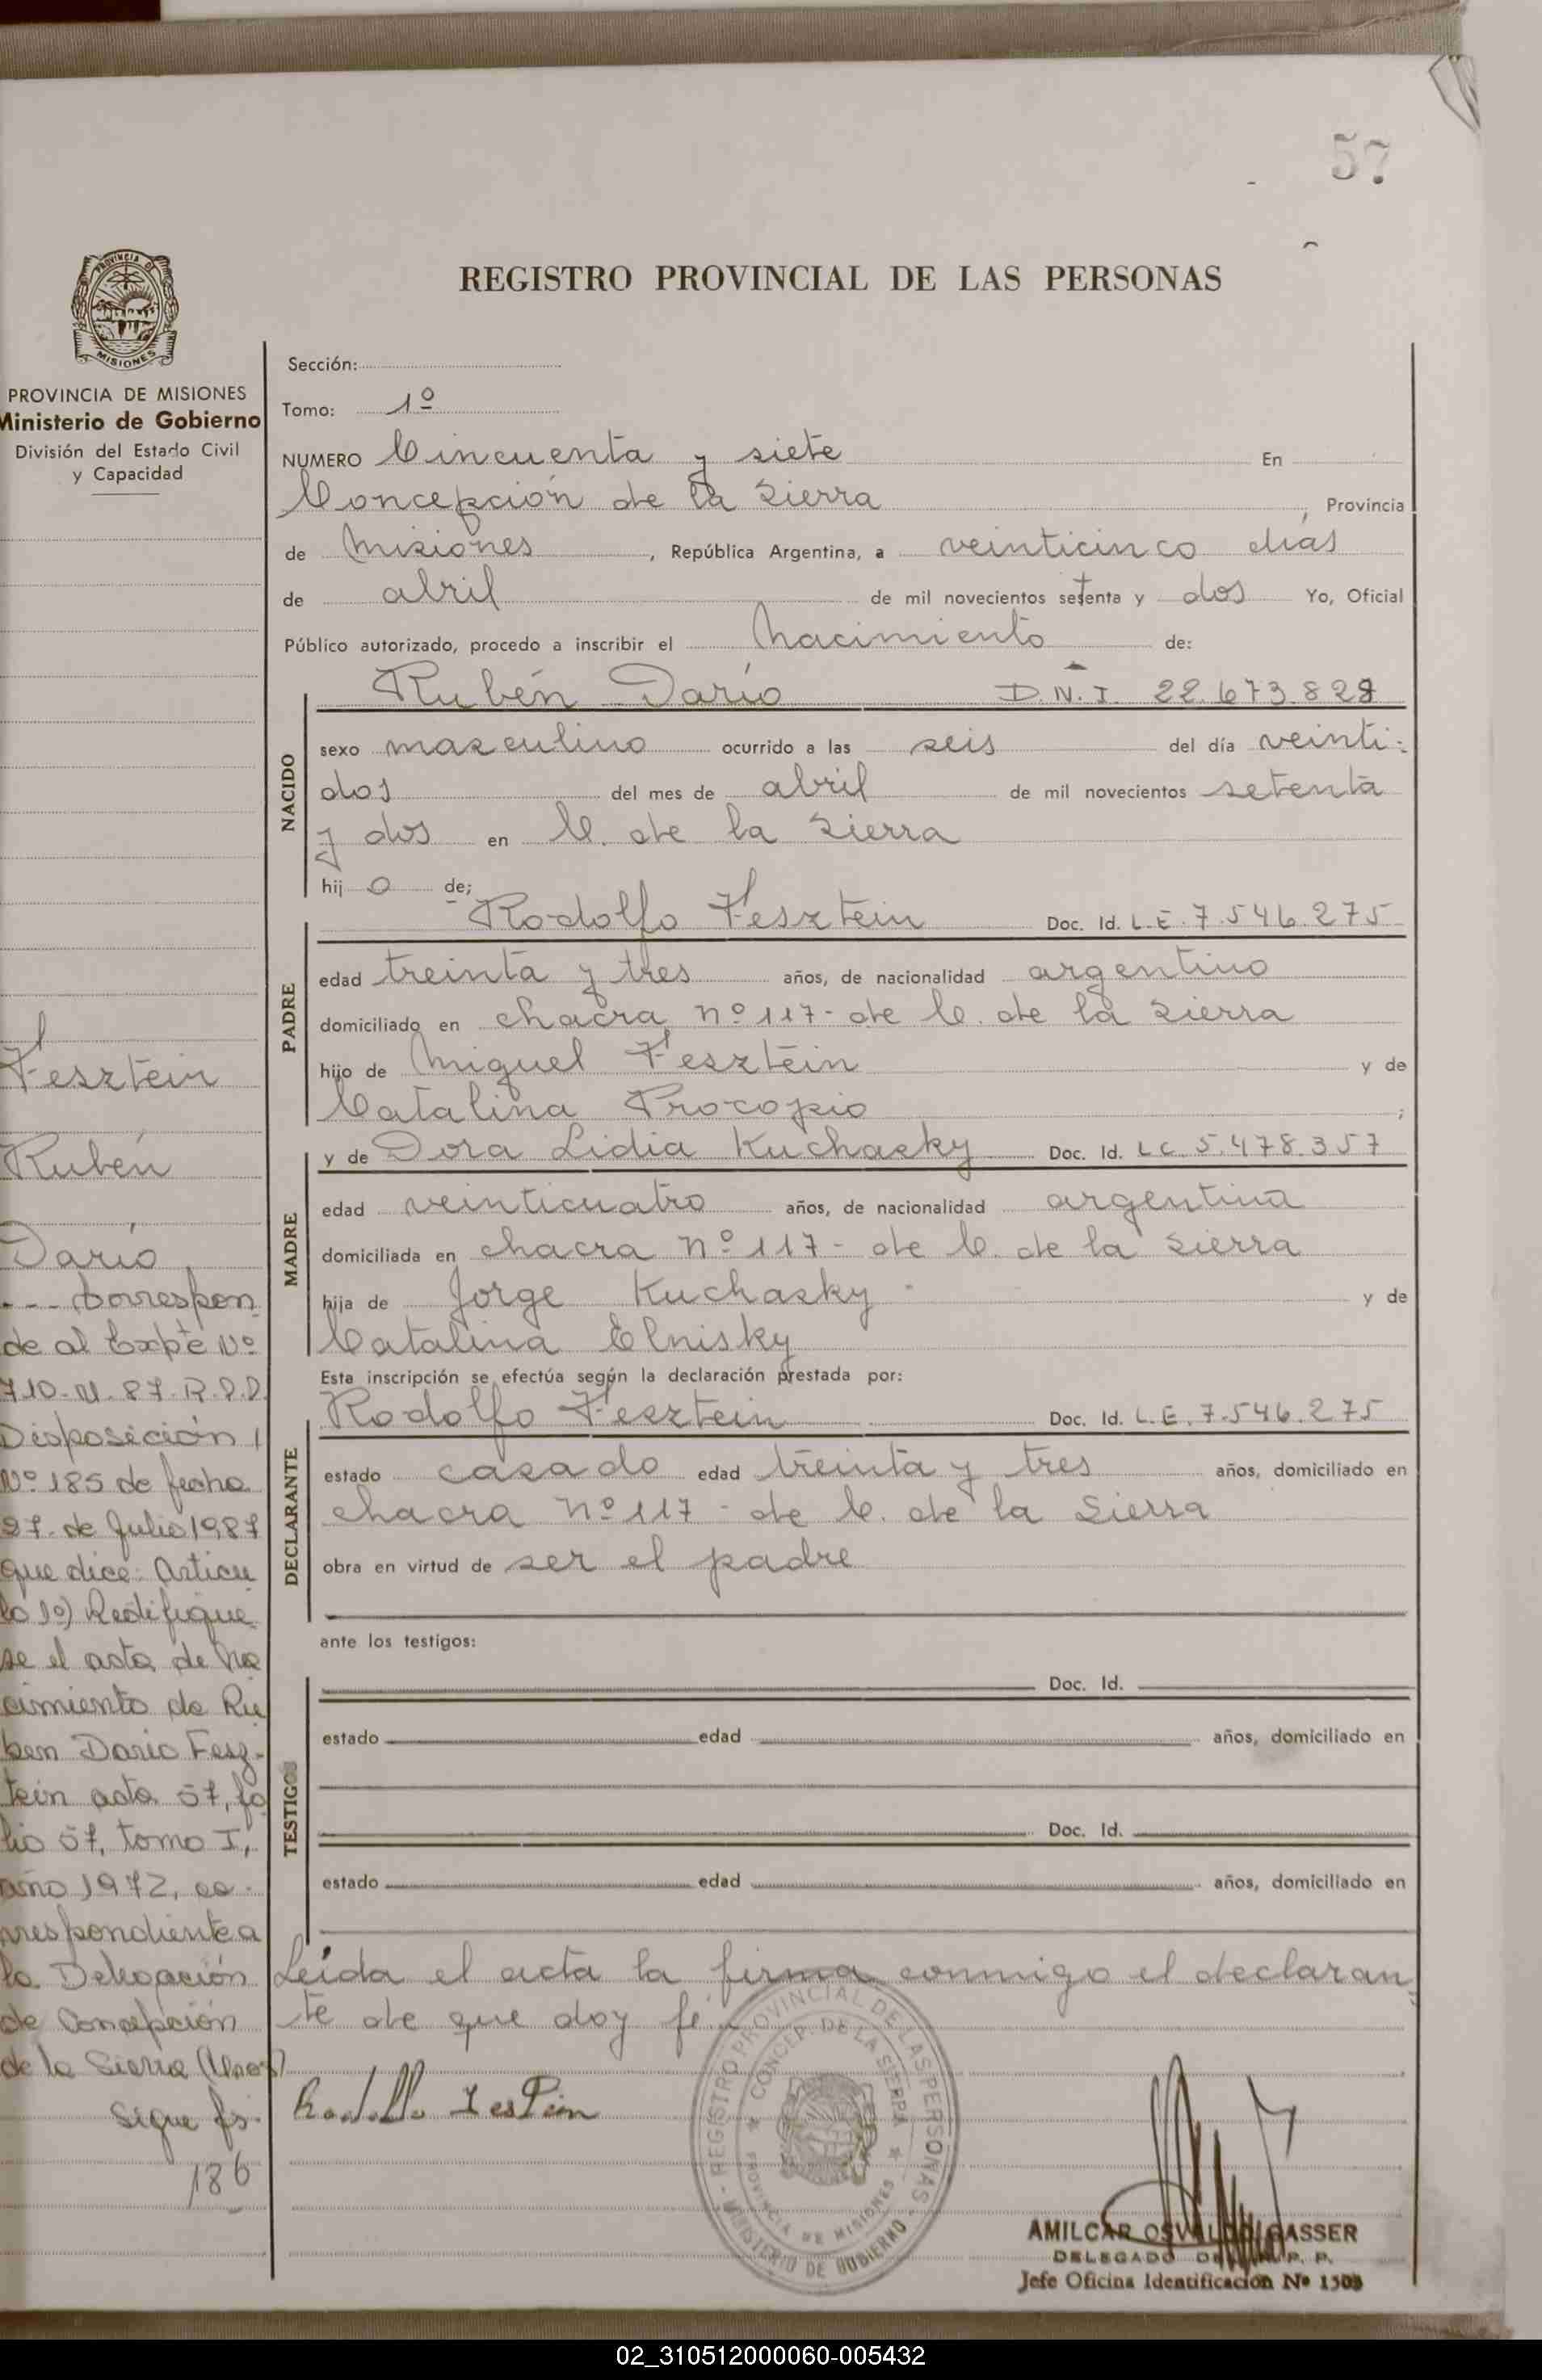 57
REGISTRO PROVINCIAL DE LAS PERSONAS
PROVINCIA DE MISIONES
Ministerio de Gobierno
División del Estado Civil
y Capacidad
Sección:
Tomo: 1º
NUMERO Cincuenta y siete En
Concepción de la Sierra, Provincia
de Misiones, República Argentina, a veinticinco días
de abril de mil novecientos setenta y dos Yo, Oficial
Público autorizado, procedo a inscribir el Nacimiento de:
NACIDO
Rubén Darío D.N.I. 22.673.828
sexo masculino ocurrido a las seis del día veinti-
dos del mes de abril de mil novecientos setenta
y dos en C. de la Sierra
hijo de;
PADRE
Rodolfo Fesztein Doc. Id. L.E. 7.546.275
edad treinta y tres años, de nacionalidad argentino
domiciliado en chacra nº 117- de C. de la Sierra
hijo de Miguel Fesztein y de
Catalina Procopio;
MADRE
y de Dora Lidia Kuchasky Doc. Id. L.C. 5.478.357
edad veinticuatro años, de nacionalidad argentina
domiciliada en chacra nº 117- de C. de la Sierra
hija de Jorge Kuchasky y de
Catalina Elnisky
Esta inscripción se efectúa según la declaración prestada por:
DECLARANTE
Rodolfo Fesztein Doc. Id. L.E. 7.546.275
estado casado edad treinta y tres años, domiciliado en
chacra nº 117- de C. de la Sierra
obra en virtud de ser el padre
ante los testigos:
TESTIGOS
Doc. Id.
estado edad años, domiciliado en
Doc. Id.
estado edad años, domiciliado en
Leída el acta la firma conmigo el declaran
te de que doy fé.
Rodolfo Festein
REGISTRO PROVINCIAL DE LAS PERSONAS - MINISTERIO DE GOBIERNO
CONCEP. DE LA SIERRA
PROVINCIA DE MISIONES
AMILCAR OSVALDO GASSER
DELEGADO DEL R. P. P.
Jefe Oficina Identificación Nº 1505
Fesztein
Rubén
Darío
--- Correspon
de al Expte Nº
710-U-87-R.P.P.
Disposición
Nº 185 de fecha
27 de Julio 1987
que dice: Articu
lo 1º) Rectifique
se el acta de Na
cimiento de Ru
ben Dario Fesz-
tein acta 57, fo
lio 57, tomo I,
año 1972, co-
rrespondiente a
la Delegación
de Concepción
de la Sierra (Mnes)
Sigue fs.
186
02_310512000060-005432